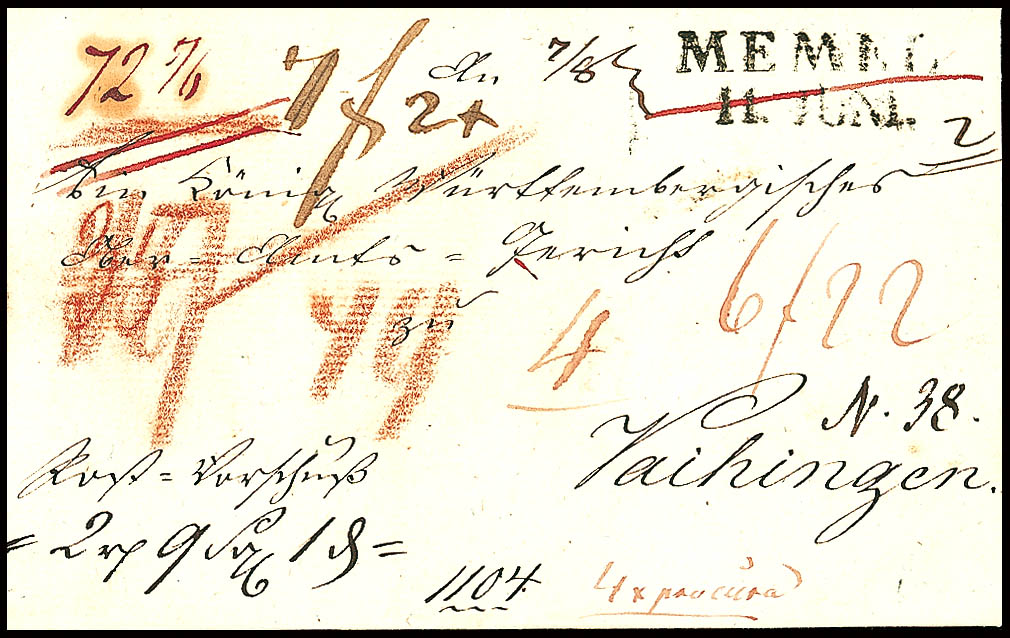 72 7/6
7f 24
An
7/8
MEMEL
11. JUNI.
2
Ein König. Württembergisches
Ober-Amts-Gericht
zu
49
4
6f22
N. 38.
Vaihingen.
Post-Vorschuß
= 2 rp 9 Sg 1 d =
1104.
4 x procura